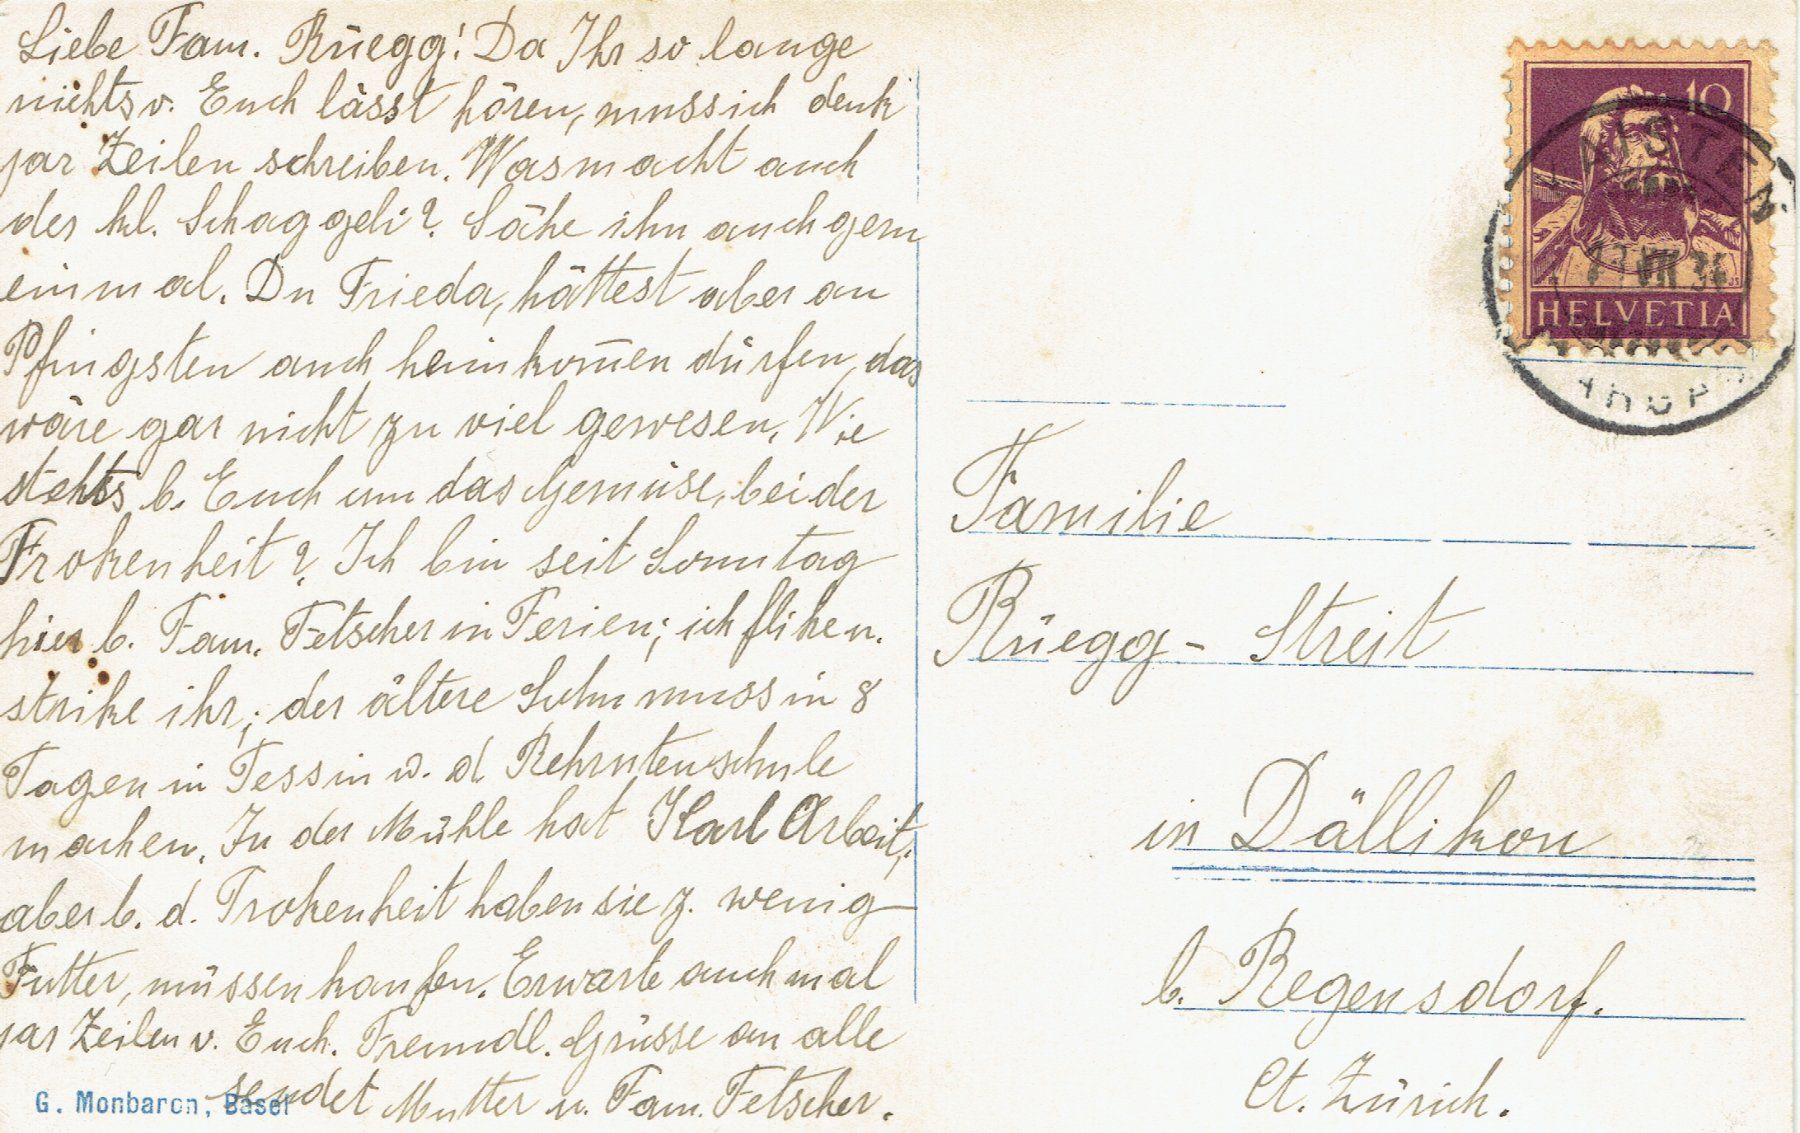 Liebe Fam. Rüegg! Da Ihr so lange
nichts v. Euch lässt hören, muss ich denk
par Zeilen schreiben. Was macht auch
der kl. Schaggeli? Sähe ihn auch gern
einmal. Du Frieda, hättest aber an
Pfingsten auch heimkom̅en dürfen, das
wäre gar nicht zu viel gewesen. Wie
stehts b. Euch um das Gemüse, bei der
Trokenheit? Ich bin seit Sonntag
hier b. Fam. Fetscher in Ferien; ich fliken.
strike ihr; der ältere Sohn muss in 8
Tagen in Tessin w. d Rekrutenschule
machen. In der Mühle hat Karl Arbeit,
aber b. d. Trokenheit haben sie z. wenig
Futter, müssen kaufen. Erwarte auch mal
par Zeilen v. Euch. Freundl. Grüsse an alle
sendet Mutter u. Fam. Fetscher.
G. Monbaron, Basel
10
HELVETIA
Familie
Rüegg - Streit
in Dällikon
b. Regensdorf.
Ct. Zürich.